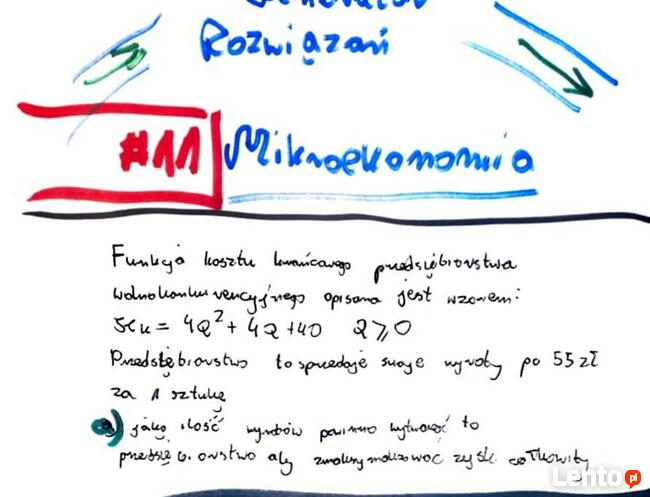 Generator
Rozwiązań
#11 Mikroekonomia
Funkcja kosztu krańcowego przedsiębiorstwa
wolnokonkurencyjnego opisana jest wzorem:
= 4Q² + 4Q + 40 Q ⩾ 0
Przedsiębiorstwo to sprzedaje swoje wyroby po 55 zł
za 1 sztukę
a) jaką ilość wyrobów powinno wytworzyć to
przedsiębiorstwo aby zmaksymalizować zysk całkowity
Lento.pl